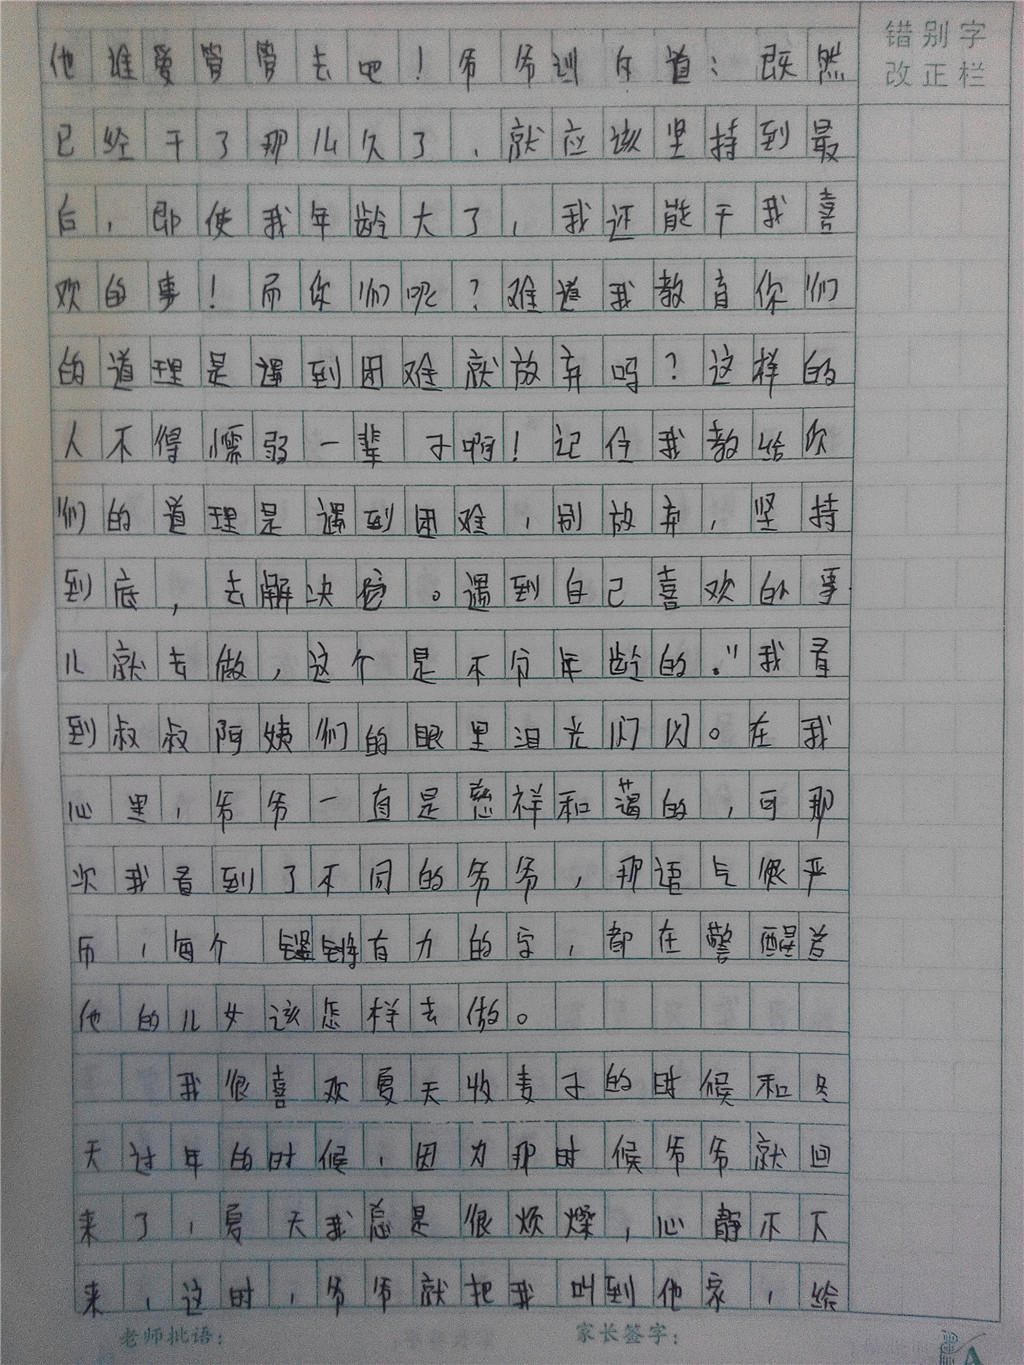 错别字
改正栏
他谁爱管管去吧！爷爷训斥道：既然
已经干了那么久了，就应该坚持到最
后，即使我年龄大了，我还能干我喜
欢的事！而你们呢？难道我教育你们
的道理是遇到困难就放弃吗？这样的
人不得懦弱一辈子啊！记住我教给你
们的道理是遇到困难，别放弃，坚持
到底，去解决它。遇到自己喜欢的事
儿就去做，这个是不分年龄的。"我看
到叔叔阿姨们的眼里泪光闪闪。在我
心里，爷爷一直是慈祥和蔼的，可那
次我看到了不同的爷爷，那语气很严
厉，每个铿锵有力的字，都在警醒着
他的儿女该怎样去做。
我很喜欢夏天收麦子的时候和冬
天过年的时候，因为那时候爷爷就回
来了，夏天我总是很烦燥，心静不下
来，这时，爷爷就把我叫到他家，给
老师批语：
家长签字：